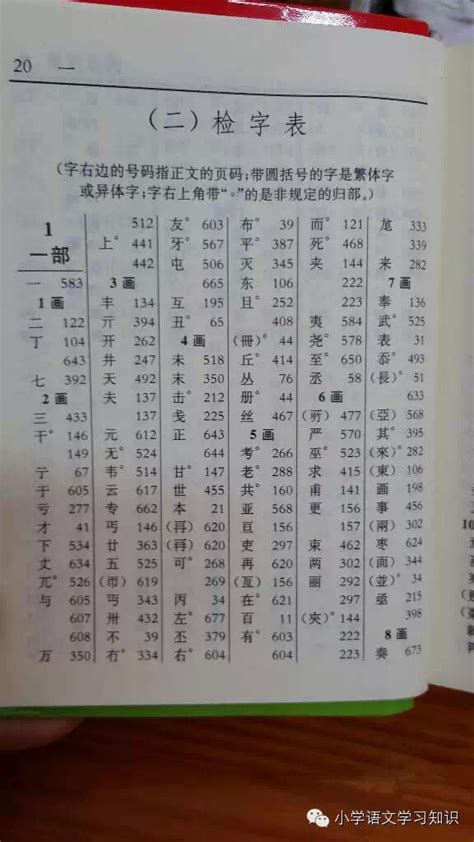 20 一
(二)检字表
(字右边的号码指正文的页码;带圆括号的字是繁体字
或异体字;字右上角带“°”的是非规定的归部。)
1
一部
一 583
1画
二 122
丁 104
643
七 392
2画
三 433
干° 146
149
亍 67
于 605
亏 277
才 41
下 534
丈 634
兀° 526
与 605
607
608
万 350
512
上° 441
442
3画
丰 134
亓 394
开 262
井 247
天 492
夫 137
137
元 612
无° 524
韦° 514
云 617
专 662
丐 146
廿 363
五 525
(帀) 619
丏 343
卅 432
不 39
冇° 334
友° 603
牙° 567
屯 506
665
互 195
丑° 65
4画
未 518
末 350
击° 212
戋 225
正 643
644
甘° 147
世 455
本 21
620
620
可° 268
269
丙 34
左° 677
丕 379
右° 604
布° 39
平° 387
灭° 345
东 106
且° 252
408
(冊)° 44
丘° 414
丛 76
册° 44
丝 467
5画
考° 266
老° 288
共° 160
亚 568
亘 156
吏 297
再 620
(亙) 156
在° 621
百 11
有° 603
604
而° 121
死° 468
夹° 144
222
223
夷 584
尧° 578
至° 650
丞 58
6画
477
严 570
巫° 523
求 415
甫 141
更 156
157
束 462
两 302
丽 292
297
(夾)° 144
222
223
尨 333
339
来 282
7画
奉 136
武° 525
表 31
忝° 493
(長)° 51
633
(亞) 568
其° 395
(來)° 282
(東) 106
画 198
事 456
(兩) 302
枣 624
(面)° 344
(並)° 34
亟 215
398
8画
奏 673
小学语文学习知识